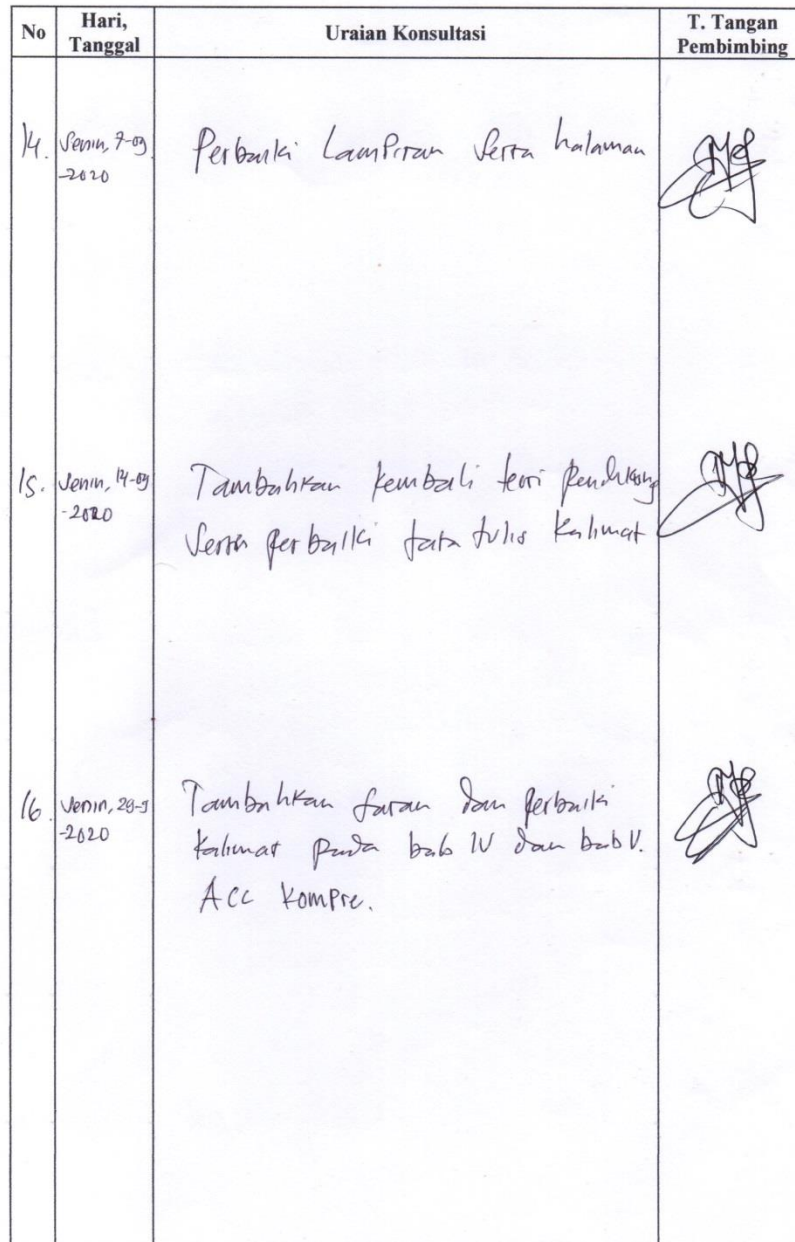 No
Hari,
Tanggal
Uraian Konsultasi
T. Tangan
Pembimbing
14.
Senin, 7-09
-2020
Perbaiki Lampiran Serta halaman
15.
Senin, 14-09
-2020
Tambahkan kembali teori pendukung
Serta perbaiki tata tulis kalimat
16.
Senin, 28-9
-2020
Tambahkan saran dan perbaiki
kalimat pada bab IV dan bab V.
ACC Kompre.